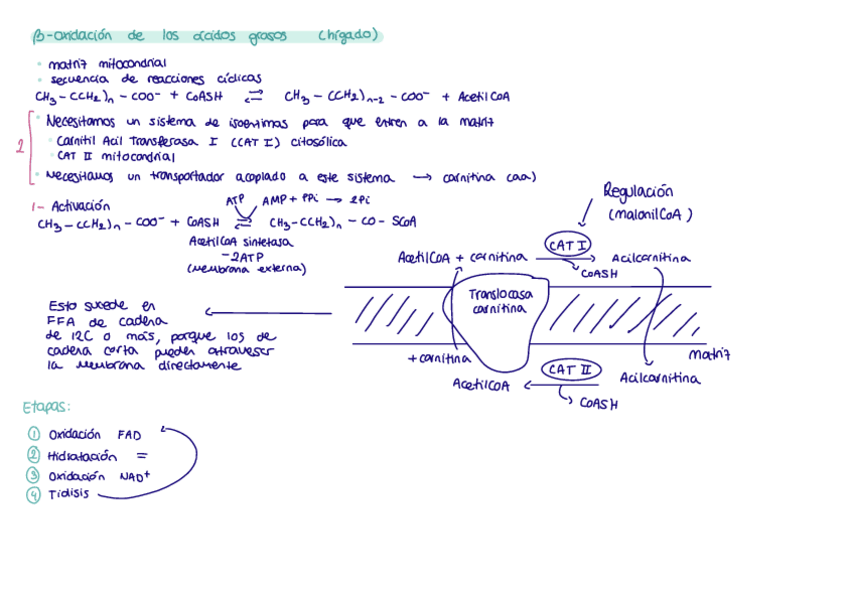 β-oxidación de los ácidos grasos (hígado)
• matriz mitocondrial
• secuencia de reacciones cíclicas
CH3 – (CH2)n – COO⁻ + CoASH ⇌ CH3 – (CH2)n-2 – COO⁻ + AcetilCoA
2
• Necesitamos un sistema de isoenzimas para que entren a la matriz
• Carnitil Acil Transferasa I (CAT I) citosólica
• CAT II mitocondrial
• Necesitamos un transportador acoplado a este sistema → carnitina (aa)
1- Activación
ATP AMP + PPi → 2Pi
CH3 – (CH2)n – COO⁻ + CoASH ⇌ CH3-(CH2)n – CO – SCoA
AcetilCoA sintetasa
-2ATP
(membrana externa)
Regulación
(malonilCoA)
AcetilCoA + carnitina
CAT I
Acilcarnitina
CoASH
Translocasa
carnitina
+ carnitina
matriz
AcetilCoA
CAT II
Acilcarnitina
CoASH
Esto sucede en
FFA de cadena
de 12C o más, porque los de
cadena corta pueden atravesar
la membrana directamente
Etapas:
① Oxidación FAD
② Hidratación =
③ Oxidación NAD⁺
④ Tiólisis